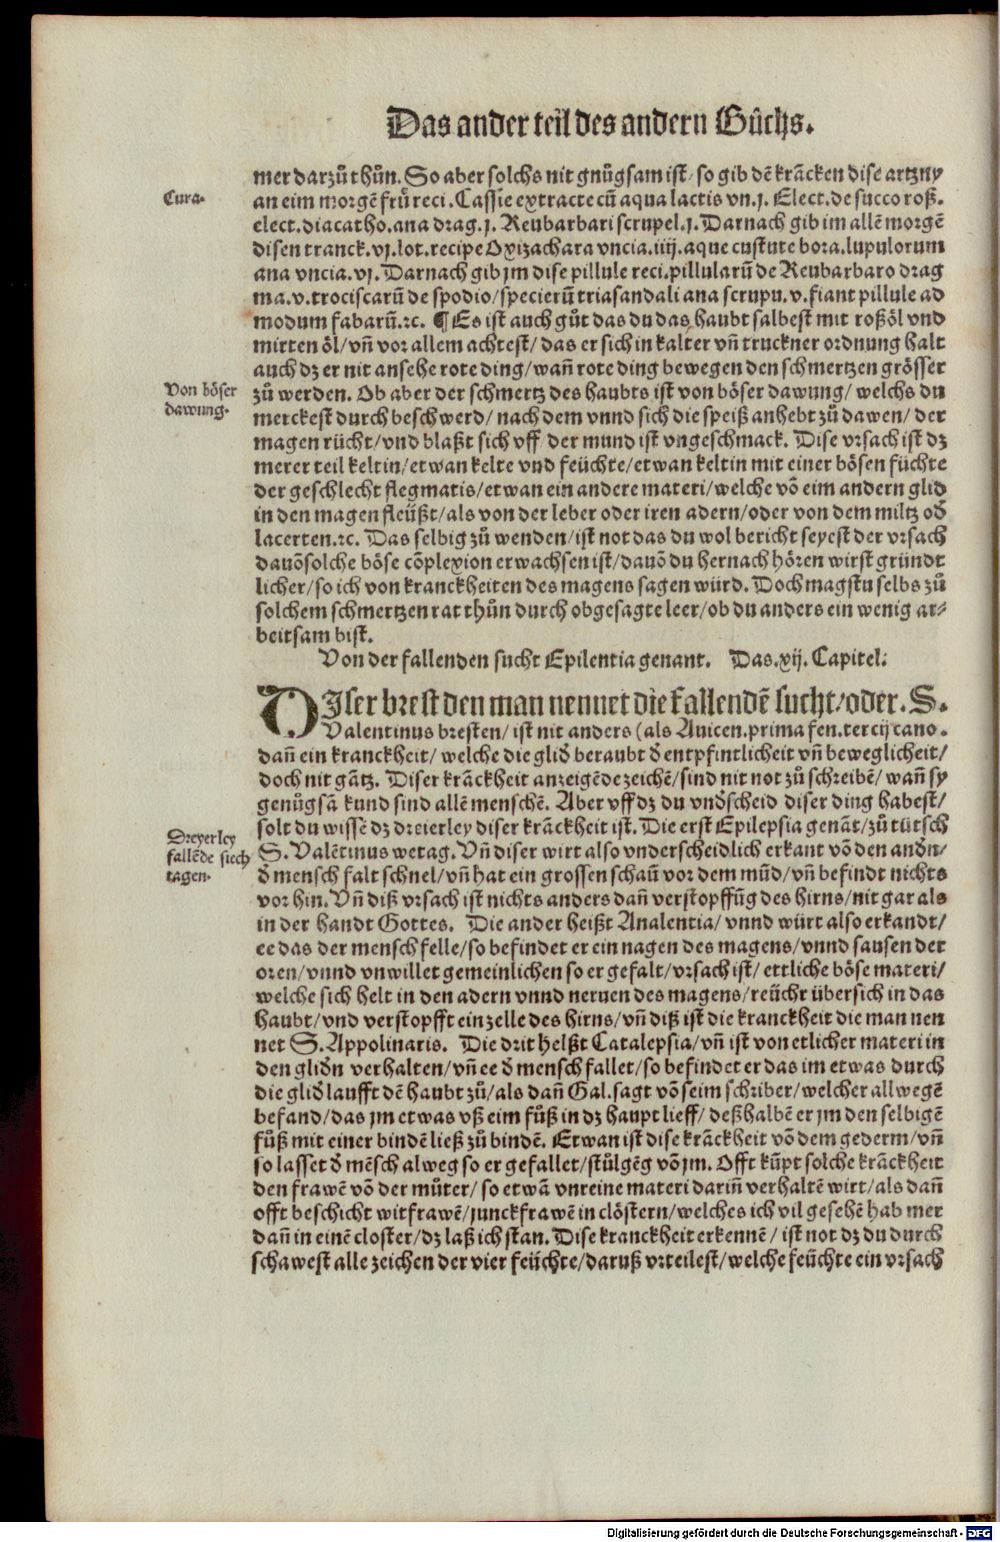 Das ander teil des andern Bůchs.
mer darzů thůn. So aber solchs nit gnůgsam ist/ so gib dē krācken dise artzny
Cura.
an eim morgē frů reci. Cassie extracte cū aqua lactis vn.j. Elect. de succo roß.
elect. diacatho. ana drag.j. Reubarbari scrupel.j. Darnach gib im allē morgē
disen tranck. vj. lot. recipe Oxizachara vncia.iiij. aque cuscute bora. lupulorum
ana vncia.vj. Darnach gib jm dise pillule reci. pillularū de Reubarbaro drag
ma.v. trociscarū de spodio/ specierū triasandali ana scrupu.v. fiant pillule ad
modum fabarū.ꝛc. ¶ Es ist auch gůt das du das haubt salbest mit roßöl vnd
mirten öl/ vñ vor allem achtest/ das er sich in kalter vñ truckner ordnung halt
auch dz er nit ansehe rote ding/ wañ rote ding bewegen den schmertzen grösser
Von böser
dawung.
zů werden. Ob aber der schmertz des haubts ist von böser dawung/ welchs du
merckest durch beschwerd/ nach dem vnnd sich die speiß anhebt zů dawen/ der
magen rücht/ vnd blaßt sich vff/ der mund ist vngeschmack. Dise vrsach ist dz
merer teil keltin/ etwan kelte vnd feüchte/ etwan keltin mit einer bösen füchte
der geschlecht flegmatis/ etwan ein andere materi/ welche vō eim andern glid
in den magen fleüßt/ als von der leber oder iren adern/ oder von dem miltz od̄
lacerten.ꝛc. Das selbig zů wenden/ ist not das du wol bericht seyest der vrsach
dauō solche böse cōplexion erwachsen ist/ dauō du hernach hören wirst gründt
licher/ so ich von kranckheiten des magens sagen würd. Doch magstu selbs zů
solchem schmertzen rat thůn durch obgesagte leer/ ob du anders ein wenig ar⸗
beitsam bist.
Von der fallenden sucht Epilentia genant. Das.xij. Capitel.
DIser brest den man nennet die fallendē sucht/ oder. S.
Valentinus bresten/ ist nit anders (als Auicen. prima fen. tercij cano.
dañ ein kranckheit/ welche die glid̄ beraubt d̄ entpfintlicheit vñ beweglicheit/
doch nit gātz. Diser krāckheit anzeigēde zeichē/ sind nit not zů schreibē/ wañ sy
genůgsā kund sind allē menschē. Aber vff dz du vnd̄scheid diser ding habest/
Dreyerley
fallēde siech
tagen.
solt du wissē dz dreierley diser krāckheit ist. Die erst Epilepsia genāt/ zů tütsch
S. Valētinus wetag. Vñ diser wirt also vnderscheidlich erkant vō den and̄n/
d̄ mensch falt schnel/ vñ hat ein grossen schaū vor dem mūd/ vñ befindt nichts
vor hin. Vñ diß vrsach ist nichts anders dañ verstopffūg des hirns/ nit gar als
in der handt Gottes. Die ander heißt Analentia/ vnnd würt also erkandt/
ee das der mensch felle/ so befindet er ein nagen des magens/ vnnd sausen der
oren/ vnnd vnwillet gemeinlichen so er gefalt/ vrsach ist/ ettliche böse materi/
welche sich helt in den adern vnnd neruen des magens/ reüchr übersich in das
haubt/ vnd verstopfft ein zelle des hirns/ vñ diß ist die kranckheit die man nen
net S. Appolinaris. Die drit heißt Catalepsia/ vñ ist von etlicher materi in
den glid̄n verhalten/ vñ ee d̄ mensch fallet/ so befindet er das im etwas durch
die glid̄ laufft dē haubt zů/ als dañ Gal. sagt vō seim schriber/ welcher allwegē
befand/ das jm etwas vß eim fůß in dz haupt lieff/ deßhalbē er jm den selbigē
fůß mit einer bindē ließ zů bindē. Etwan ist dise krāckheit vō dem gederm/ vñ
so lasset d̄ mēsch alweg so er gefallet/ stůlgēg vō jm. Offt kūpt solche krāckheit
den frawē vō der můter/ so etwā vnreine materi dariñ verhaltē wirt/ als dañ
offt beschicht witfrawē/ junckfrawē in clöstern/ welches ich vil gesehē hab mer
dañ in einē closter/ dz laß ich stan. Dise kranckheit erkennē/ ist not dz du durch
schawest alle zeichen der vier feüchte/ daruß vrteilest/ welche feüchte ein vrsach
Digitalisierung gefördert durch die Deutsche Forschungsgemeinschaft - DFG